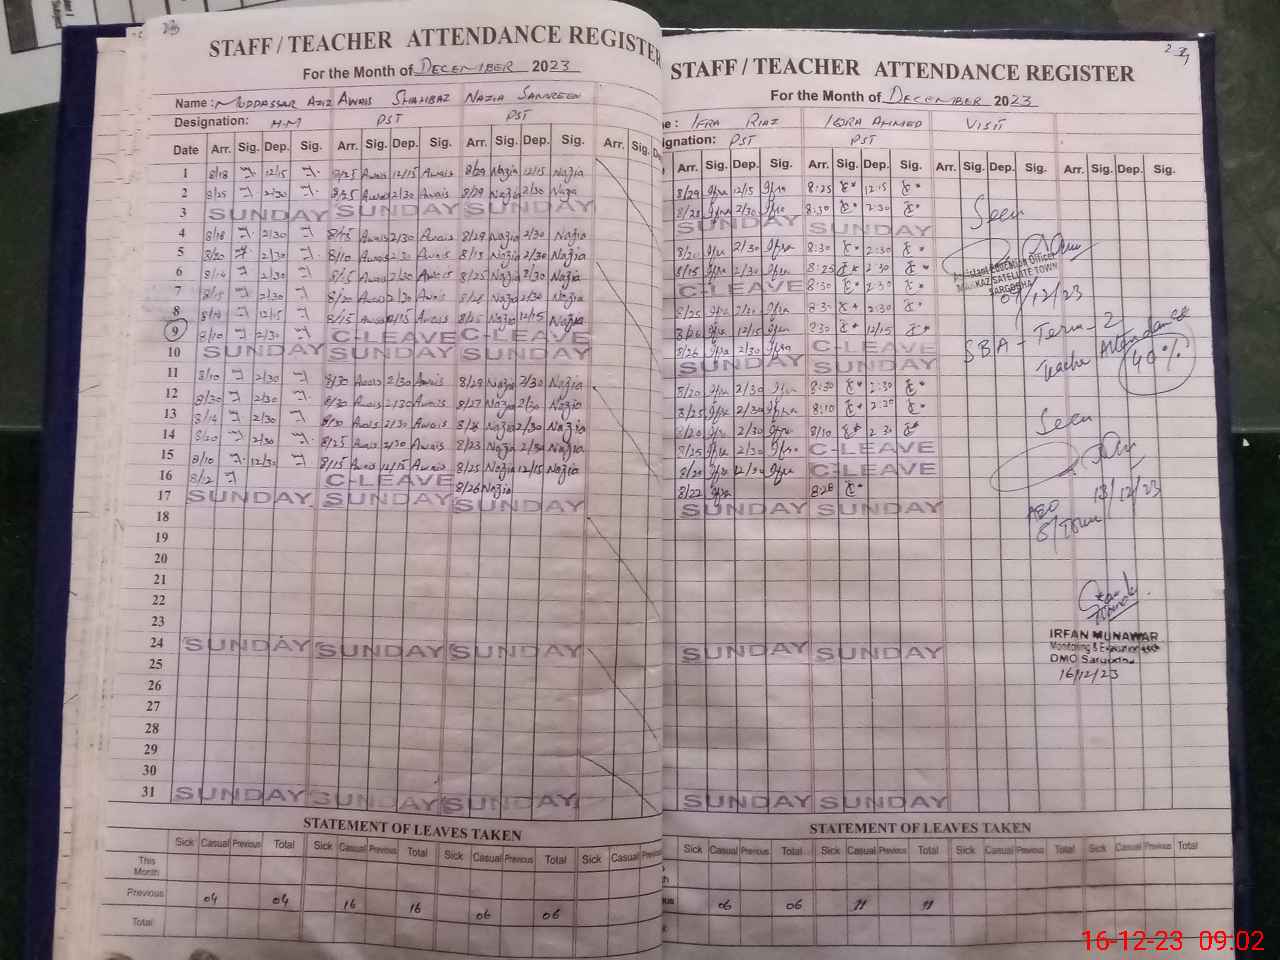 23
STAFF / TEACHER ATTENDANCE REGISTER
For the Month of DECEMBER 2023
Name : MUDDASSAR AZIZ AWAIS SHAHBAZ NAZIA SAMREEN
Designation: H-M PST PST
Date Arr. Sig. Dep. Sig. Arr. Sig. Dep. Sig. Arr. Sig. Dep. Sig. Arr. Sig.
1 8/18 12/15 8/25 Awais 12/15 Awais 8/29 Nazia 12/15 Nazia
2 8/25 2/30 8/25 Awais 2/30 Awais 8/29 Nazia 2/30 Nazia
3 SUNDAY SUNDAY SUNDAY
4 8/18 2/30 8/15 Awais 2/30 Awais 8/29 Nazia 2/30 Nazia
5 8/20 2/30 8/10 Awais 2/30 Awais 8/15 Nazia 2/30 Nazia
6 8/14 2/30 8/15 Awais 2/30 Awais 8/25 Nazia 2/30 Nazia
7 8/15 2/30 8/20 Awais 2/30 Awais Nazia 2/30 Nazia
8 12/15 8/15 Awais 12/15 Awais Nazia 12/15 Nazia
9 8/10 2/30 C-LEAVE C-LEAVE
10 SUNDAY SUNDAY SUNDAY
11 8/10 2/30 8/30 Awais 2/30 Awais 8/29 Nazia 2/30 Nazia
12 8/20 2/30 8/30 Awais 2/30 Awais 8/27 Nazia 2/30 Nazia
13 8/14 2/30 8/30 Awais 2/30 Awais Nazia 2/30 Nazia
14 8/20 2/30 8/25 Awais 2/30 Awais 8/23 Nazia 2/30 Nazia
15 8/10 12/30 8/15 Awais 12/15 Awais 8/25 Nazia 12/15 Nazia
16 8/12 C-LEAVE 8/26 Nazia
17 SUNDAY SUNDAY SUNDAY
18
19
20
21
22
23
24 SUNDAY SUNDAY SUNDAY
25
26
27
28
29
30
31 SUNDAY SUNDAY SUNDAY
STATEMENT OF LEAVES TAKEN
Sick Casual Previous Total Sick Casual Previous Total Sick Casual Previous Total Sick Casual Previous
This Month
Previous 04 04 16 16 06 06
Total
STAFF / TEACHER ATTENDANCE REGISTER
For the Month of DECEMBER 2023
IFRA RIAZ IQRA AHMED VISIT
PST PST
Arr. Sig. Dep. Sig. Arr. Sig. Dep. Sig. Arr. Sig. Dep. Sig. Arr. Sig. Dep. Sig.
8/29 Ifra 12/15 Ifra 8:25 12:15
8/28 Ifra 2/30 Ifra 8:30 2:30
SUNDAY SUNDAY
8/20 Ifra 2/30 Ifra 8:30 2:30
8/15 Ifra 2/30 Ifra 8:25 2:30
C-LEAVE 8:30 2:30
8/25 Ifra 2/30 Ifra 2:30
Ifra 12/15 Ifra 12/15
8/26 Ifra 2/30 Ifra C-LEAVE
SUNDAY SUNDAY
8/20 Ifra 2/30 Ifra 8:30 2:30
8/25 Ifra 2/30 Ifra 8:10 2:30
8/20 Ifra 2/30 Ifra 8/10 2:30
8/25 Ifra 2/30 Ifra C-LEAVE
8/20 Ifra 12/30 Ifra C-LEAVE
8/22 Ifra 8:28
SUNDAY SUNDAY
SUNDAY SUNDAY
SUNDAY SUNDAY
Seen
Assistant Education Officer
MARKAZ SATELLITE TOWN
SARGODHA
07/12/23
SBA - Term - 2
Teacher Attendance
40%
Seen
AEO
S/Town 13/12/23
IRFAN MUNAWAR
DMO Sargodha
16/12/23
STATEMENT OF LEAVES TAKEN
Sick Casual Previous Total Sick Casual Previous Total Sick Casual Previous Total Sick Casual Previous Total
06 06 11 11
16-12-23 09:02